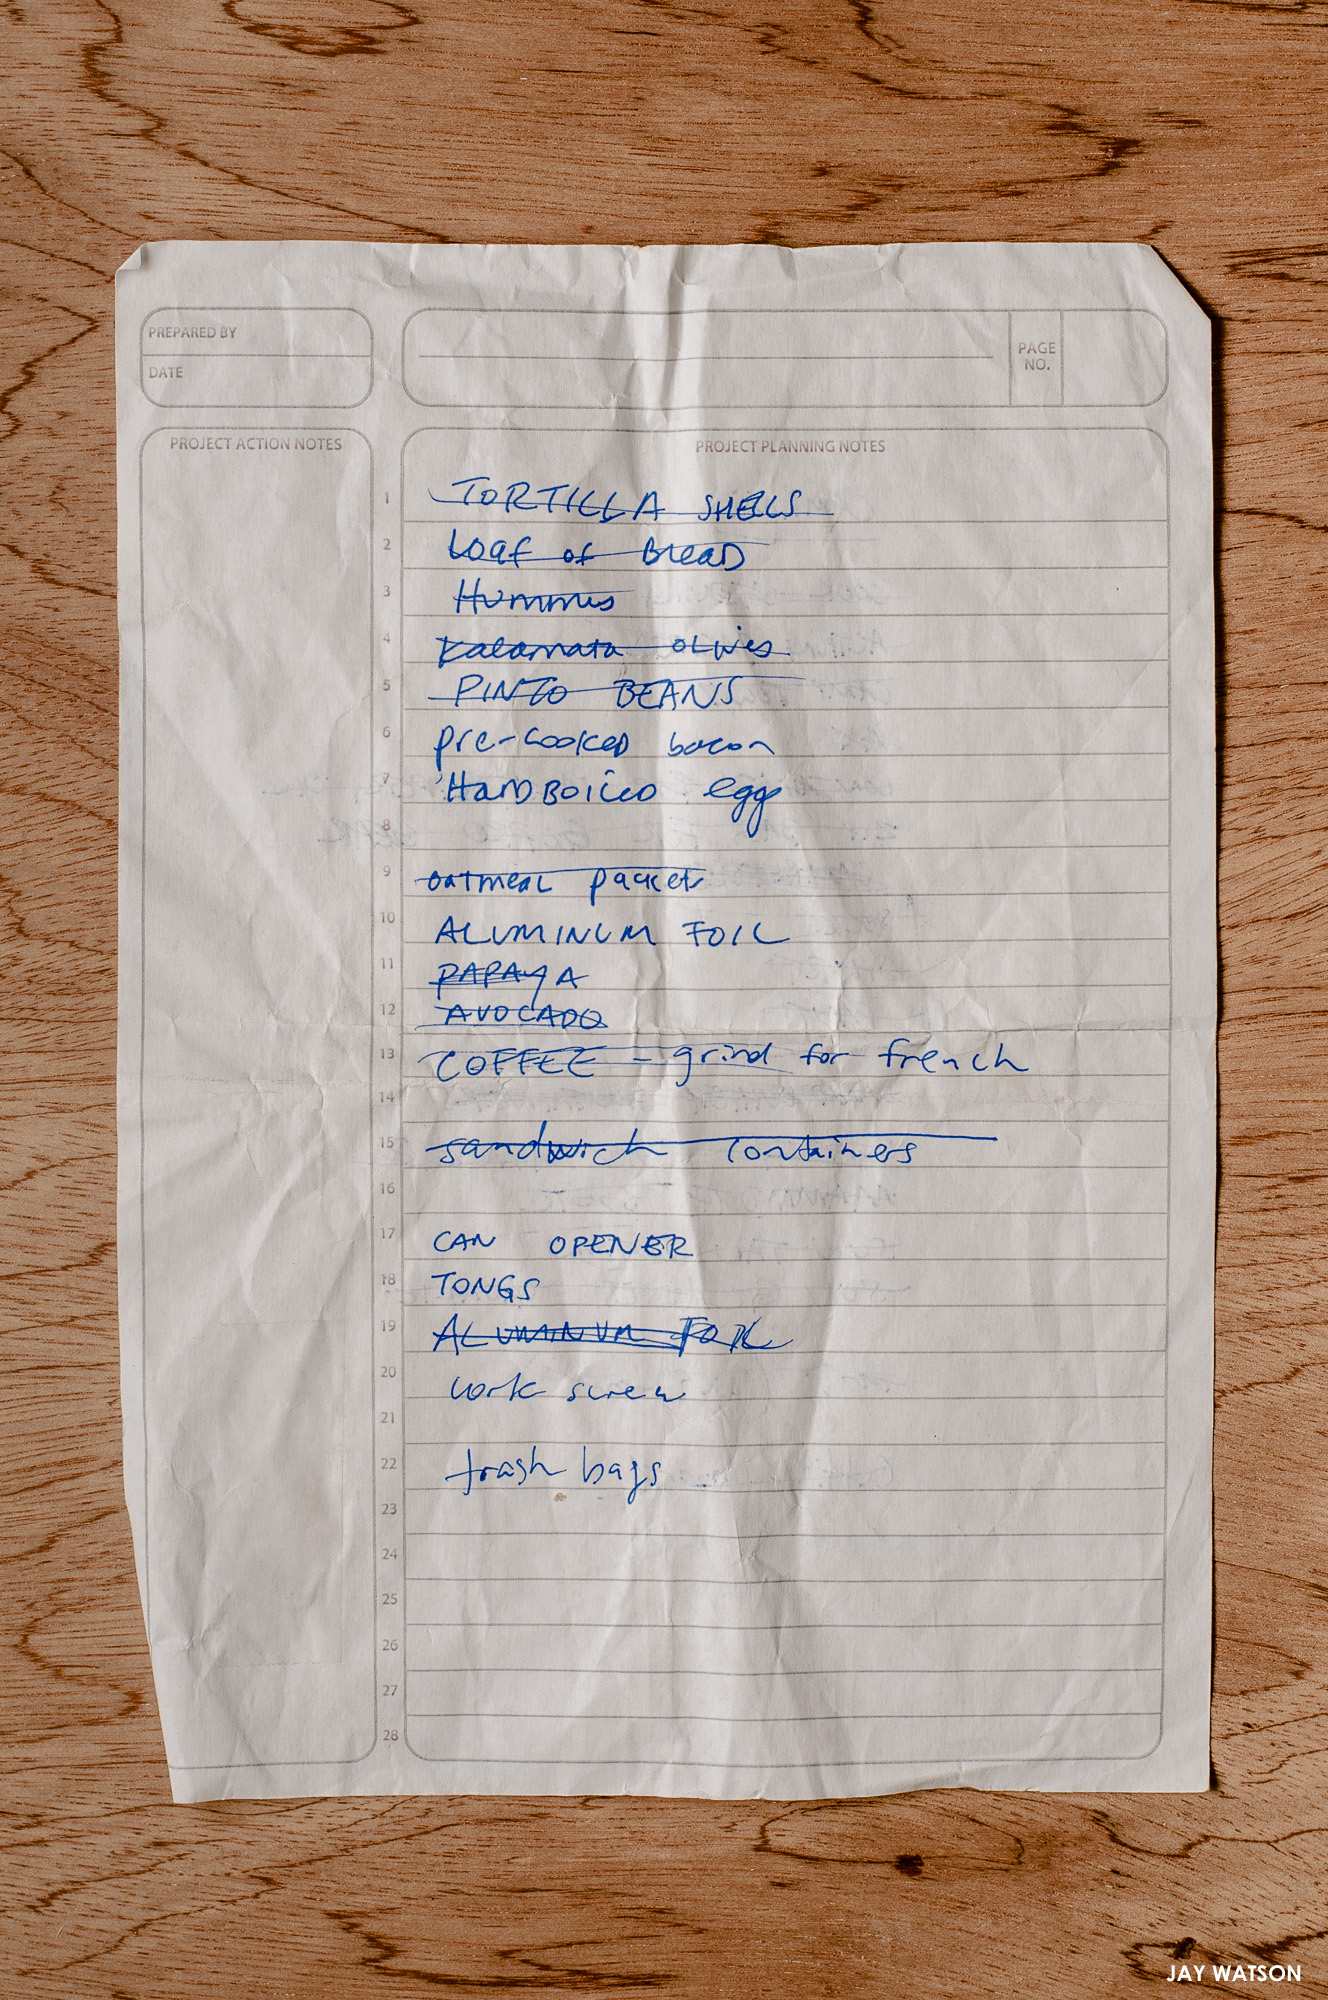 PREPARED BY
DATE
PAGE
NO.
PROJECT ACTION NOTES
PROJECT PLANNING NOTES
1 TORTILLA SHELLS
2 Loaf of Bread
3 Hummus
4 Kalamata olives
5 PINTO BEANS
6 pre-cooked bacon
7 HardBoiled egg
8
9 oatmeal packets
10 ALUMINUM FOIL
11 PAPAYA
12 AVOCADO
13 COFFEE - grind for french
14
15 sandwich containers
16
17 CAN OPENER
18 TONGS
19 ALUMINUM FOIL
20 cork screw
21
22 trash bags
23
24
25
26
27
28
JAY WATSON